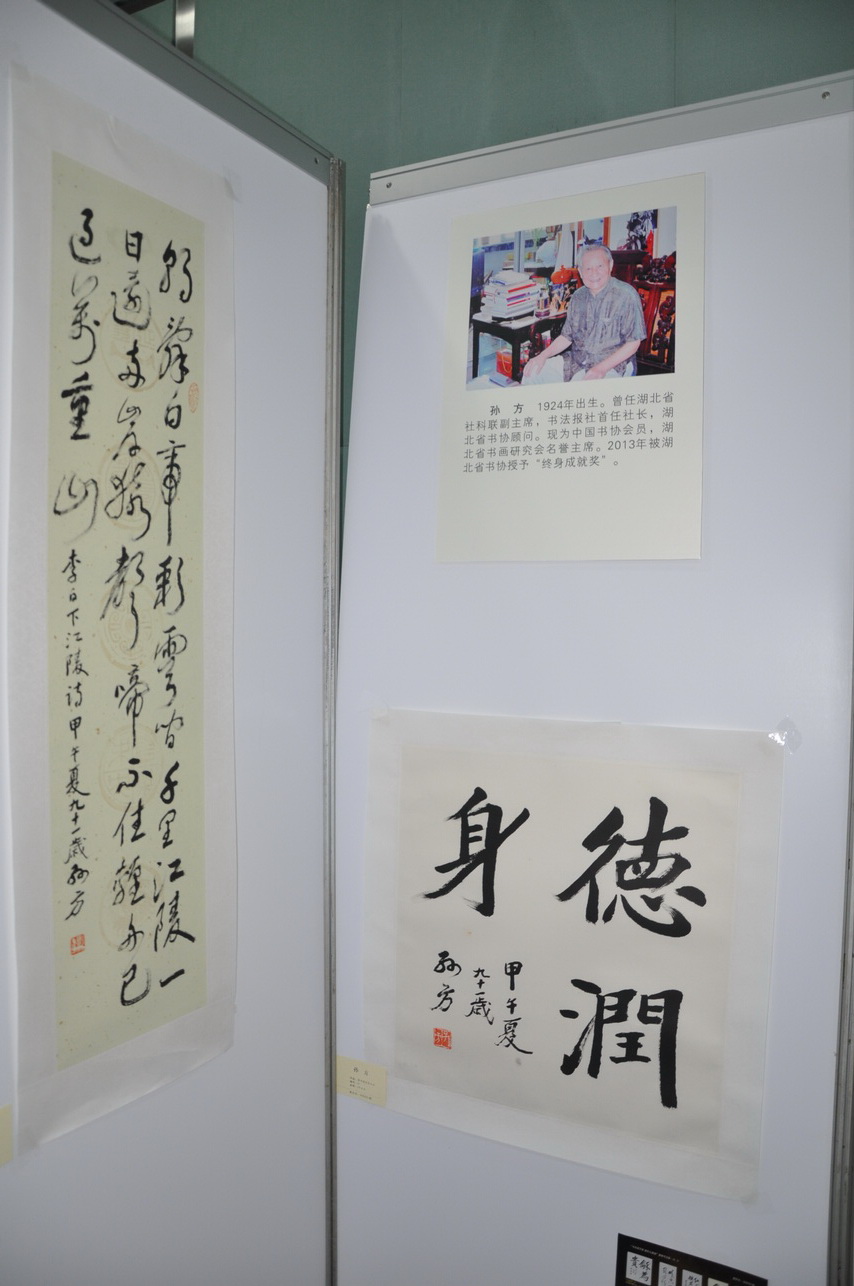 朝辭白帝彩雲間千里江陵一
日還兩岸猿聲啼不住輕舟已
過萬重山
李白下江陵詩甲午夏九十一歲孫方
孙 方 1924年出生。曾任湖北省
社科联副主席，书法报社首任社长，湖
北省书协顾问。现为中国书协会员，湖
北省书画研究会名誉主席。2013年被湖
北省书协授予“终身成就奖”。
德潤
身
甲午夏
九十一歲
孫方